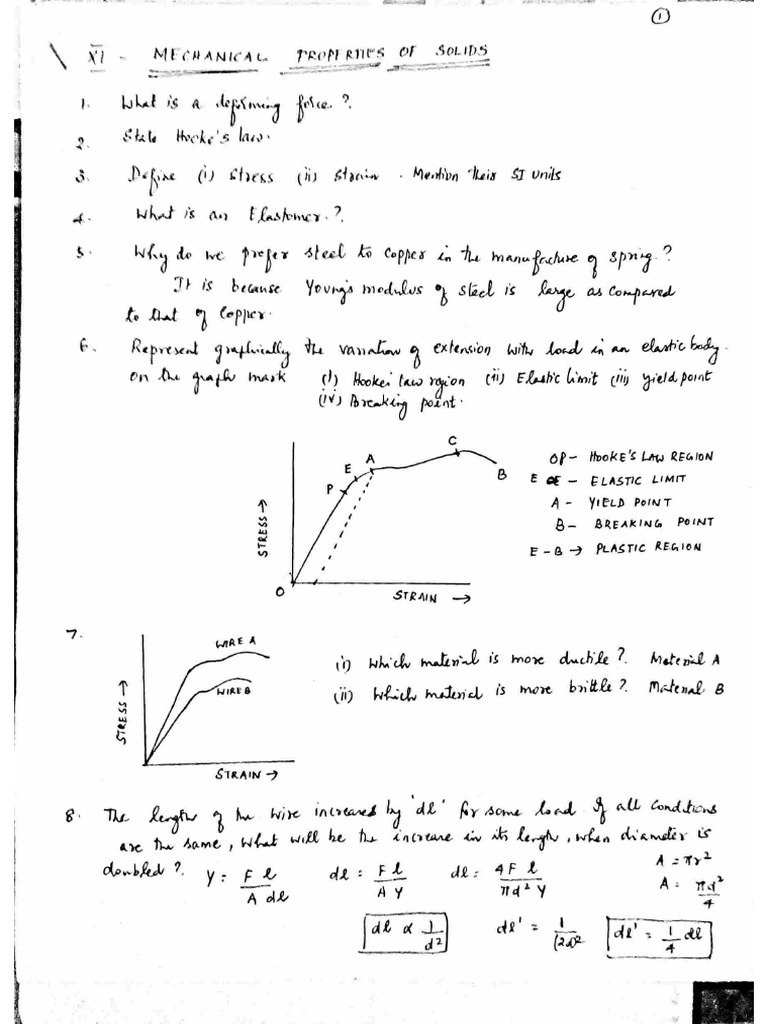 1
XI - MECHANICAL PROPERTIES OF SOLIDS
1. What is a deforming force?.
2. State Hooke's law.
3. Define (i) Stress (ii) Strain. Mention their SI units
4. What is an Elastomer.?.
5. Why do we prefer steel to copper in the manufacture of spring.?
It is because Young's modulus of steel is large as compared
to that of Copper.
6. Represent graphically the variation of extension with load in an elastic body.
on the graph mark (i) Hooke's law region (ii) Elastic Limit (iii) yield point
(iv) Breaking point.
OP - HOOKE'S LAW REGION
E - ELASTIC LIMIT
A - YIELD POINT
B - BREAKING POINT
E - B → PLASTIC REGION
STRESS →
P
E
A
C
B
O
STRAIN →
7.
WIRE A
WIRE B
STRESS →
STRAIN →
(i) Which material is more ductile?. Material A
(ii) Which material is more brittle?. Material B
8. The length of the wire increased by 'dl' for some load. If all conditions
are the same, what will be the increase in its length, when diameter is
doubled?. Y = F l / A dl dl = F l / A Y dl = 4F l / πd² Y A = πr²
A = πd² / 4
dl ∝ 1 / d² dl' = 1 / (2d)² dl' = 1 / 4 dl